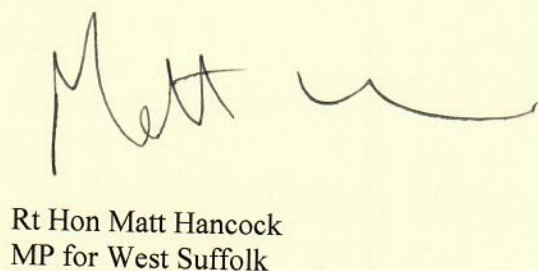 Matt
Rt Hon Matt Hancock
MP for West Suffolk